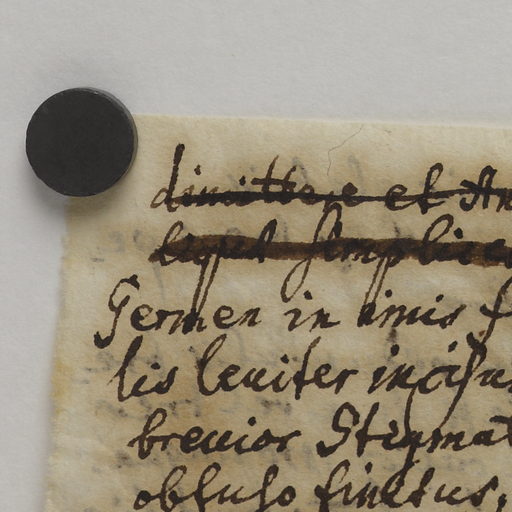 dimittere et An
liquet simplices
Germen in imis f
lis leuiter incisu
breuior Stigmat
obtuso finitus,